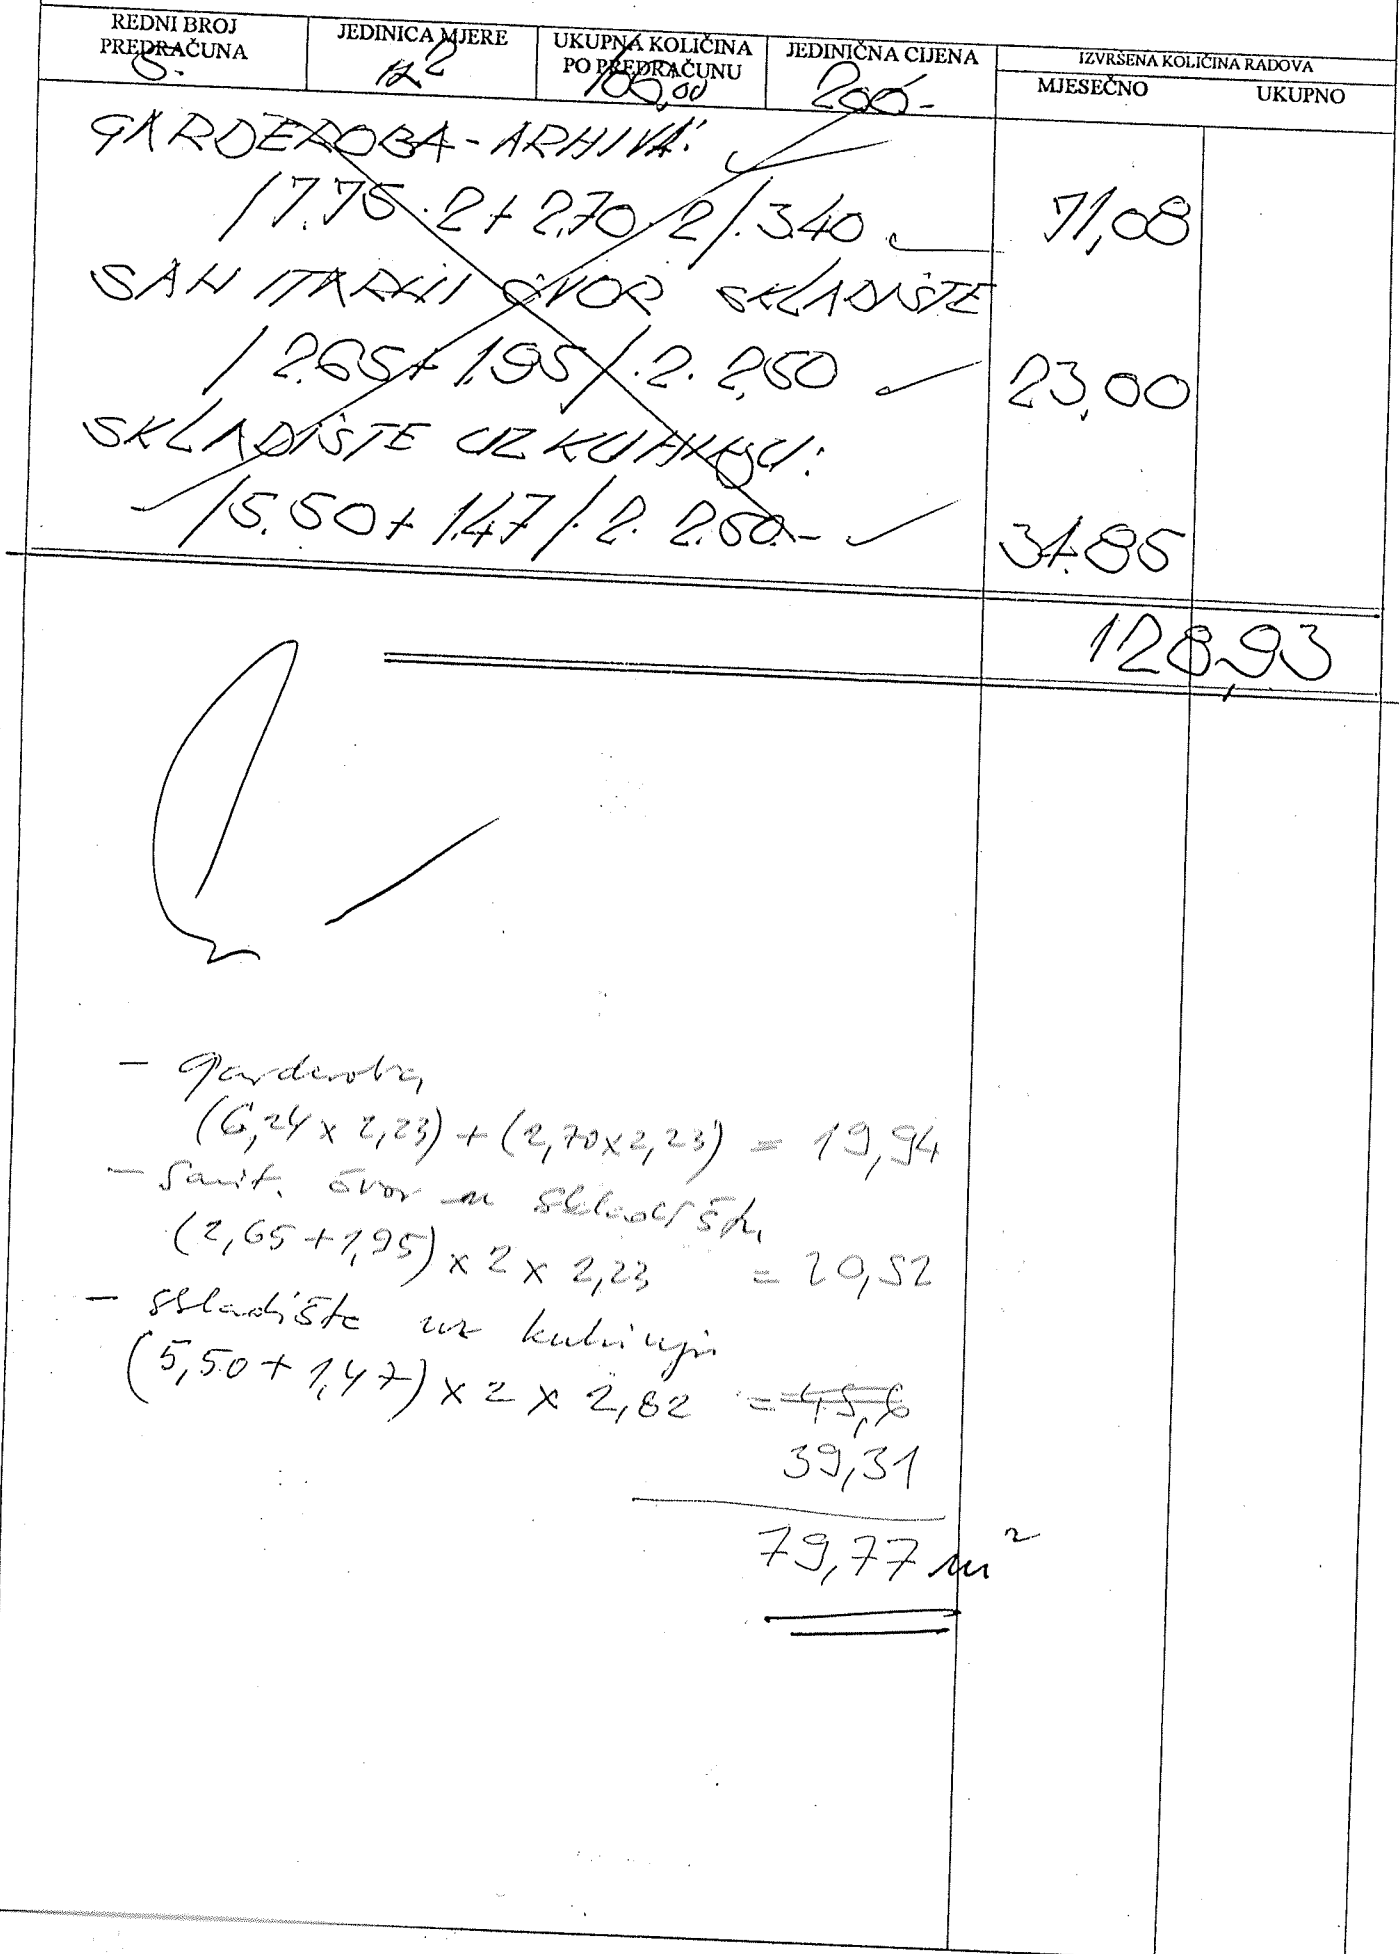 REDNI BROJ PREDRAČUNA
JEDINICA MJERE
UKUPNA KOLIČINA PO PREDRAČUNU
JEDINIČNA CIJENA
IZVRŠENA KOLIČINA RADOVA
MJESEČNO UKUPNO
5. m2 100,00 200.-
GARDEROBA-ARHIVA:
/7.75.2+2.70.2/.3.40 71,08
SANITARNI ČVOR SKLADIŠTE
/2.65+1.95/.2.2,50 23,00
SKLADIŠTE UZ KUHINJU:
/5.50+1.47/.2.2.50.- 34.85
128,93
- garderoba
(6,24 x 2,23) + (2,70x2,23) = 19,94
- Sanit. čvor u skladištu
(2,65+1,95) x 2 x 2,23 = 20,52
- skladište uz kuhinju
(5,50+1,47) x 2 x 2,82 = 45,6
39,31
79,77 m2